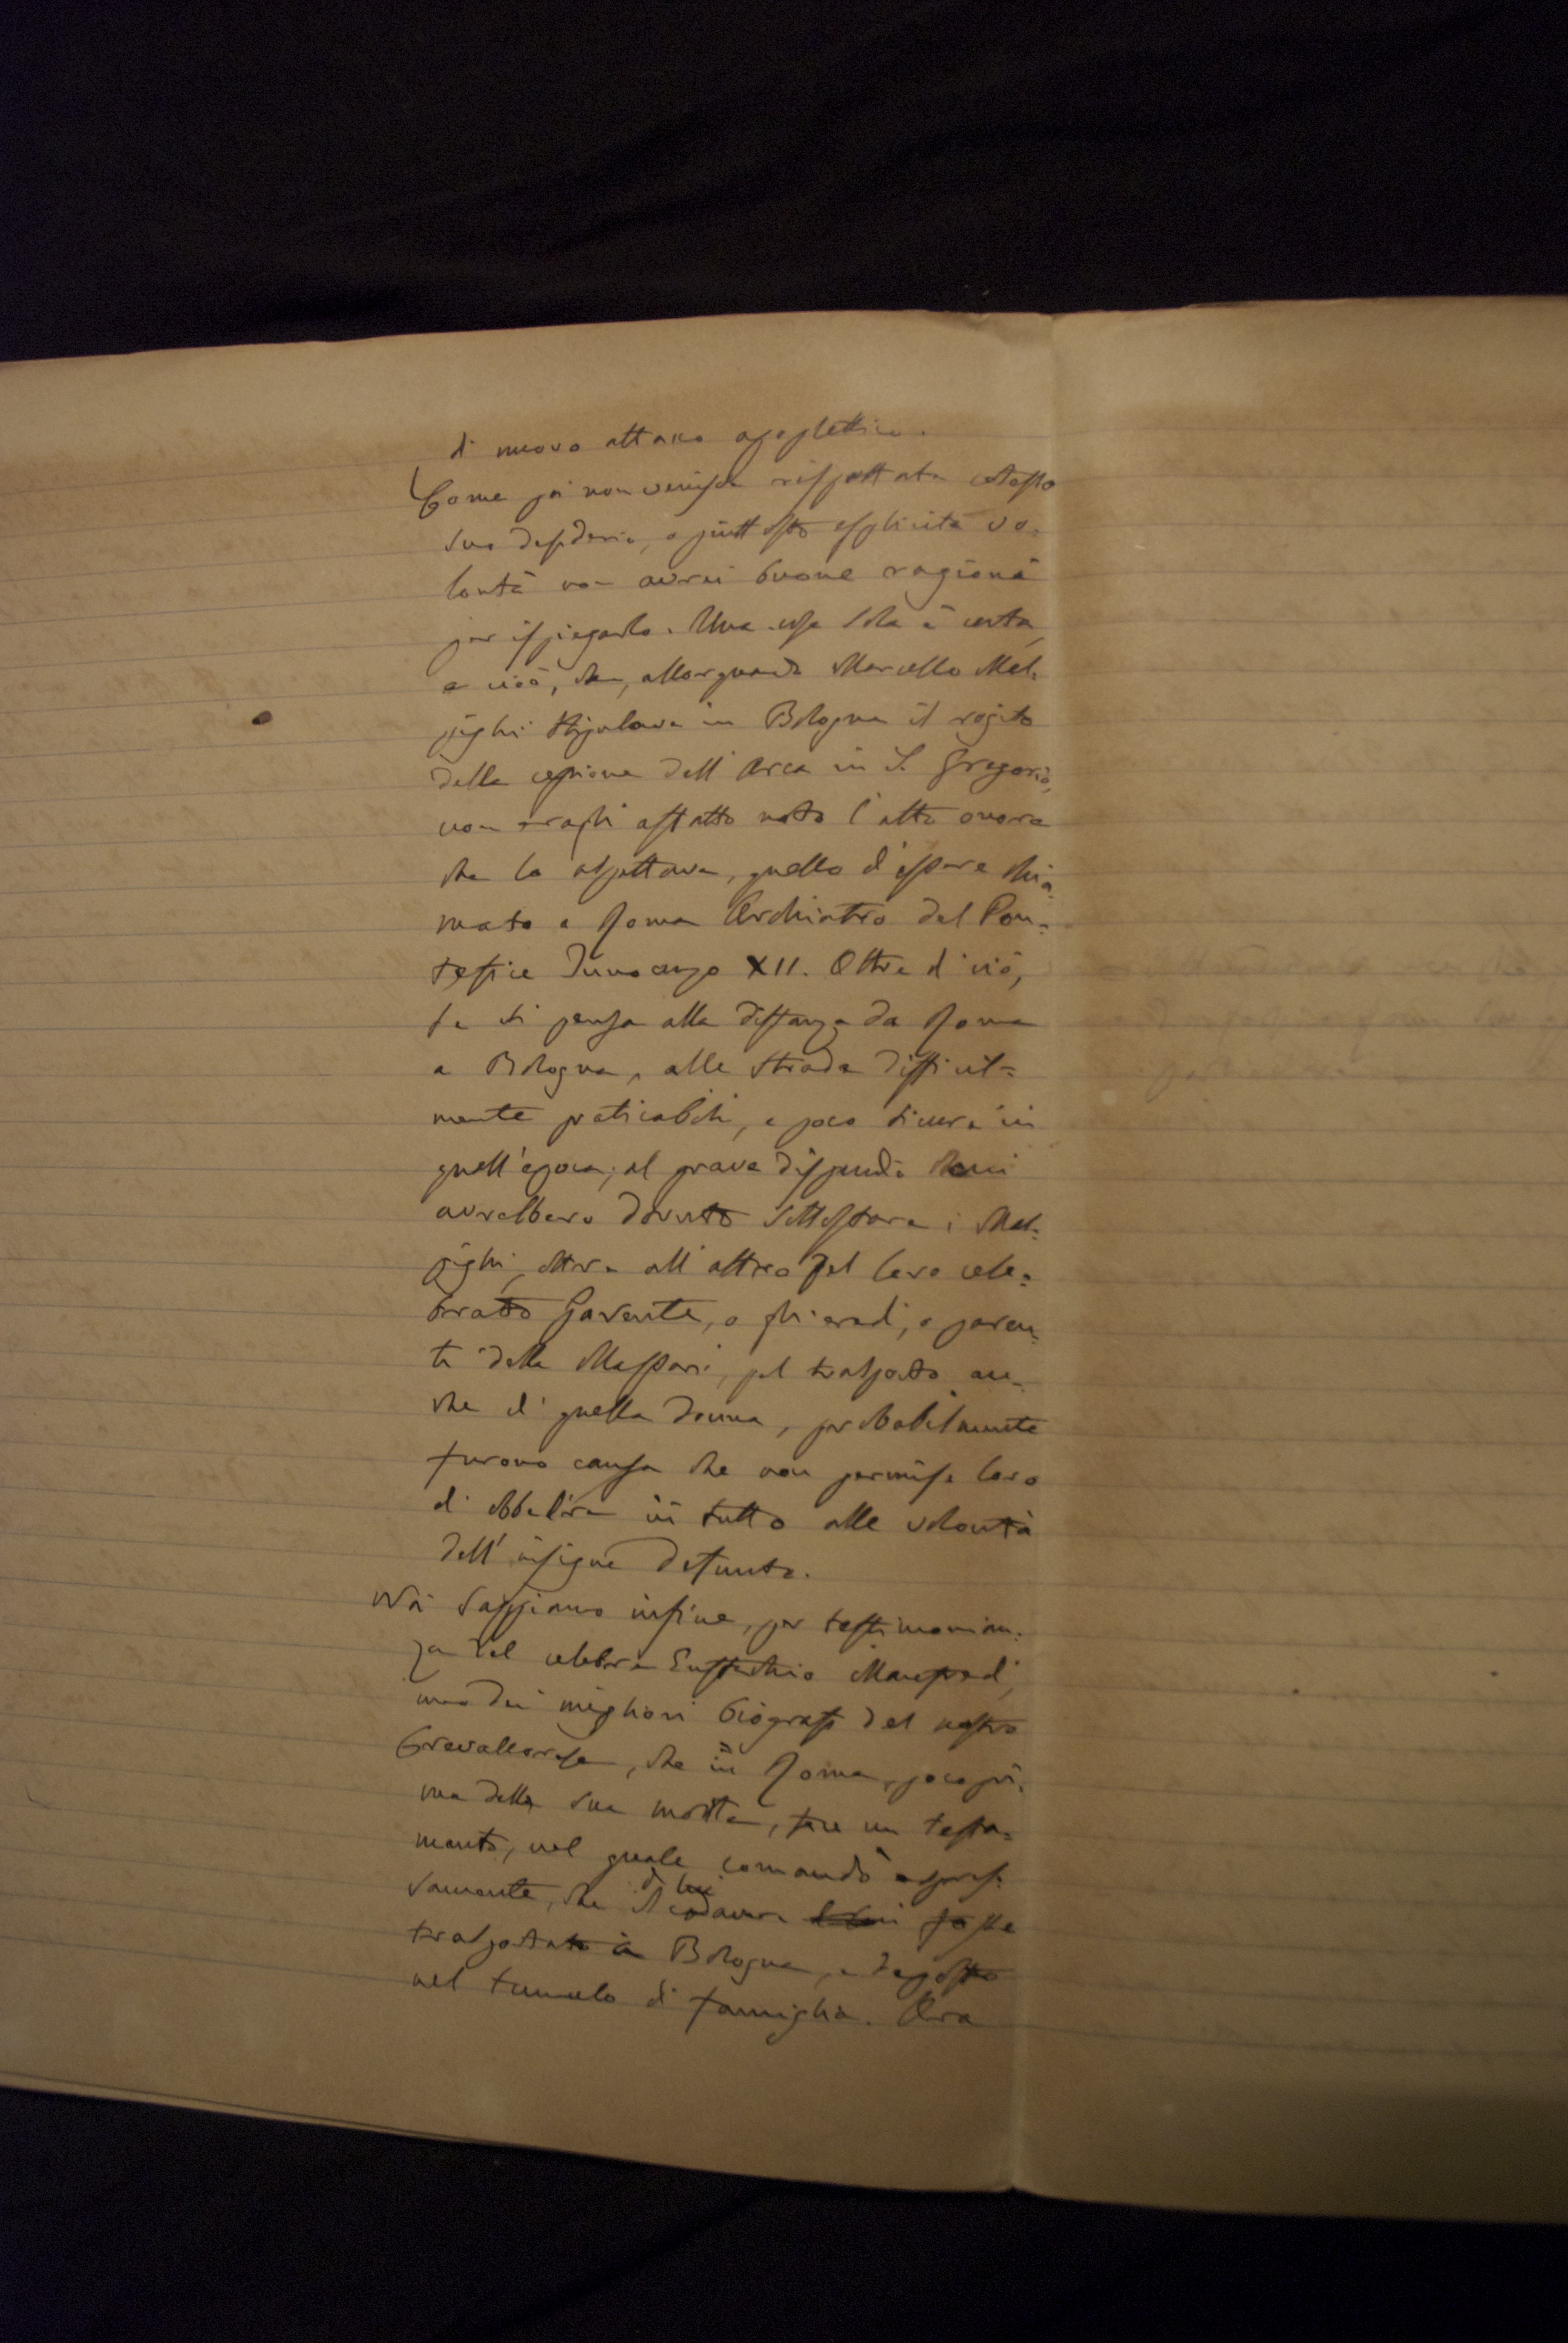 di nuovo attacco apoplettico.
Come poi non venisse rispettato cotesto
suo desiderio, o piuttosto esplicita vo-
lontà non avrei buone ragioni
per ispiegarlo. Una cosa sola è certa,
e cioè, che, allorquando Marcello Mal-
pighi stipulava in Bologna il rogito
della cessione dell'Arca in S. Gregorio,
non eragli affatto noto l'alto onore
che lo aspettava, quello d'essere chia-
mato a Roma Archiatro del Pon-
tefice Innocenzo XII. Oltre di ciò,
se si pensa alla distanza da Roma
a Bologna, alle strade difficil-
mente praticabili, e poco sicure in
quell'epoca; al grave dispendio a cui
avrebbero dovuto sottostare i Mal-
pighi, oltre all'altro pel loro cele-
brato Parente, o gli eredi, o paren-
ti della Massari, pel trasporto an-
che di quella donna, probabilmente
furono causa che non permise loro
di obbedire in tutto alle volontà
dell'insigne defunto.
Noi sappiamo infine, per testimonian-
za del celebre Eustachio Manfredi,
uno dei migliori biografi del nostro
Crevalcorese, che in Roma, poco pri-
ma della sua morte, fece un testa-
mento, nel quale comandò espres-
samente, che il di lui cadavere fosse
trasportato a Bologna, e deposto
nel tumulo di famiglia. Ora